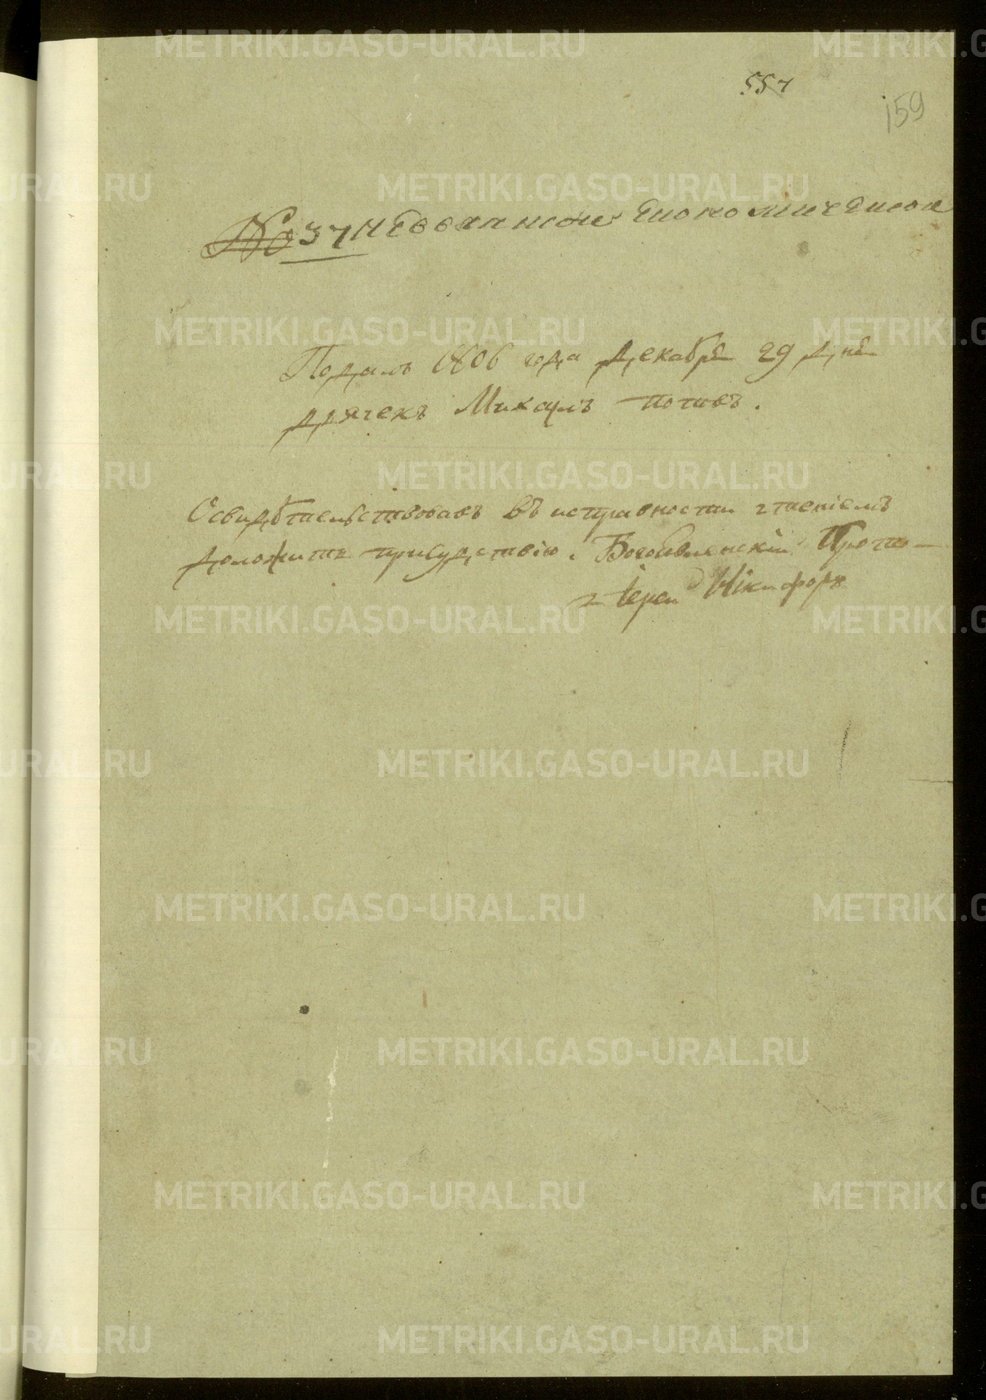 METRIKI.GASO-URAL.RU
557
159
№ 37
Подалъ 1806 года декабря 29 дня
дьячекъ Михаилъ поповъ.
Освидѣтельствовавъ въ исправности чтениемъ
доложить присудствію. Богоявленскій Прото-
іерей Никифоръ